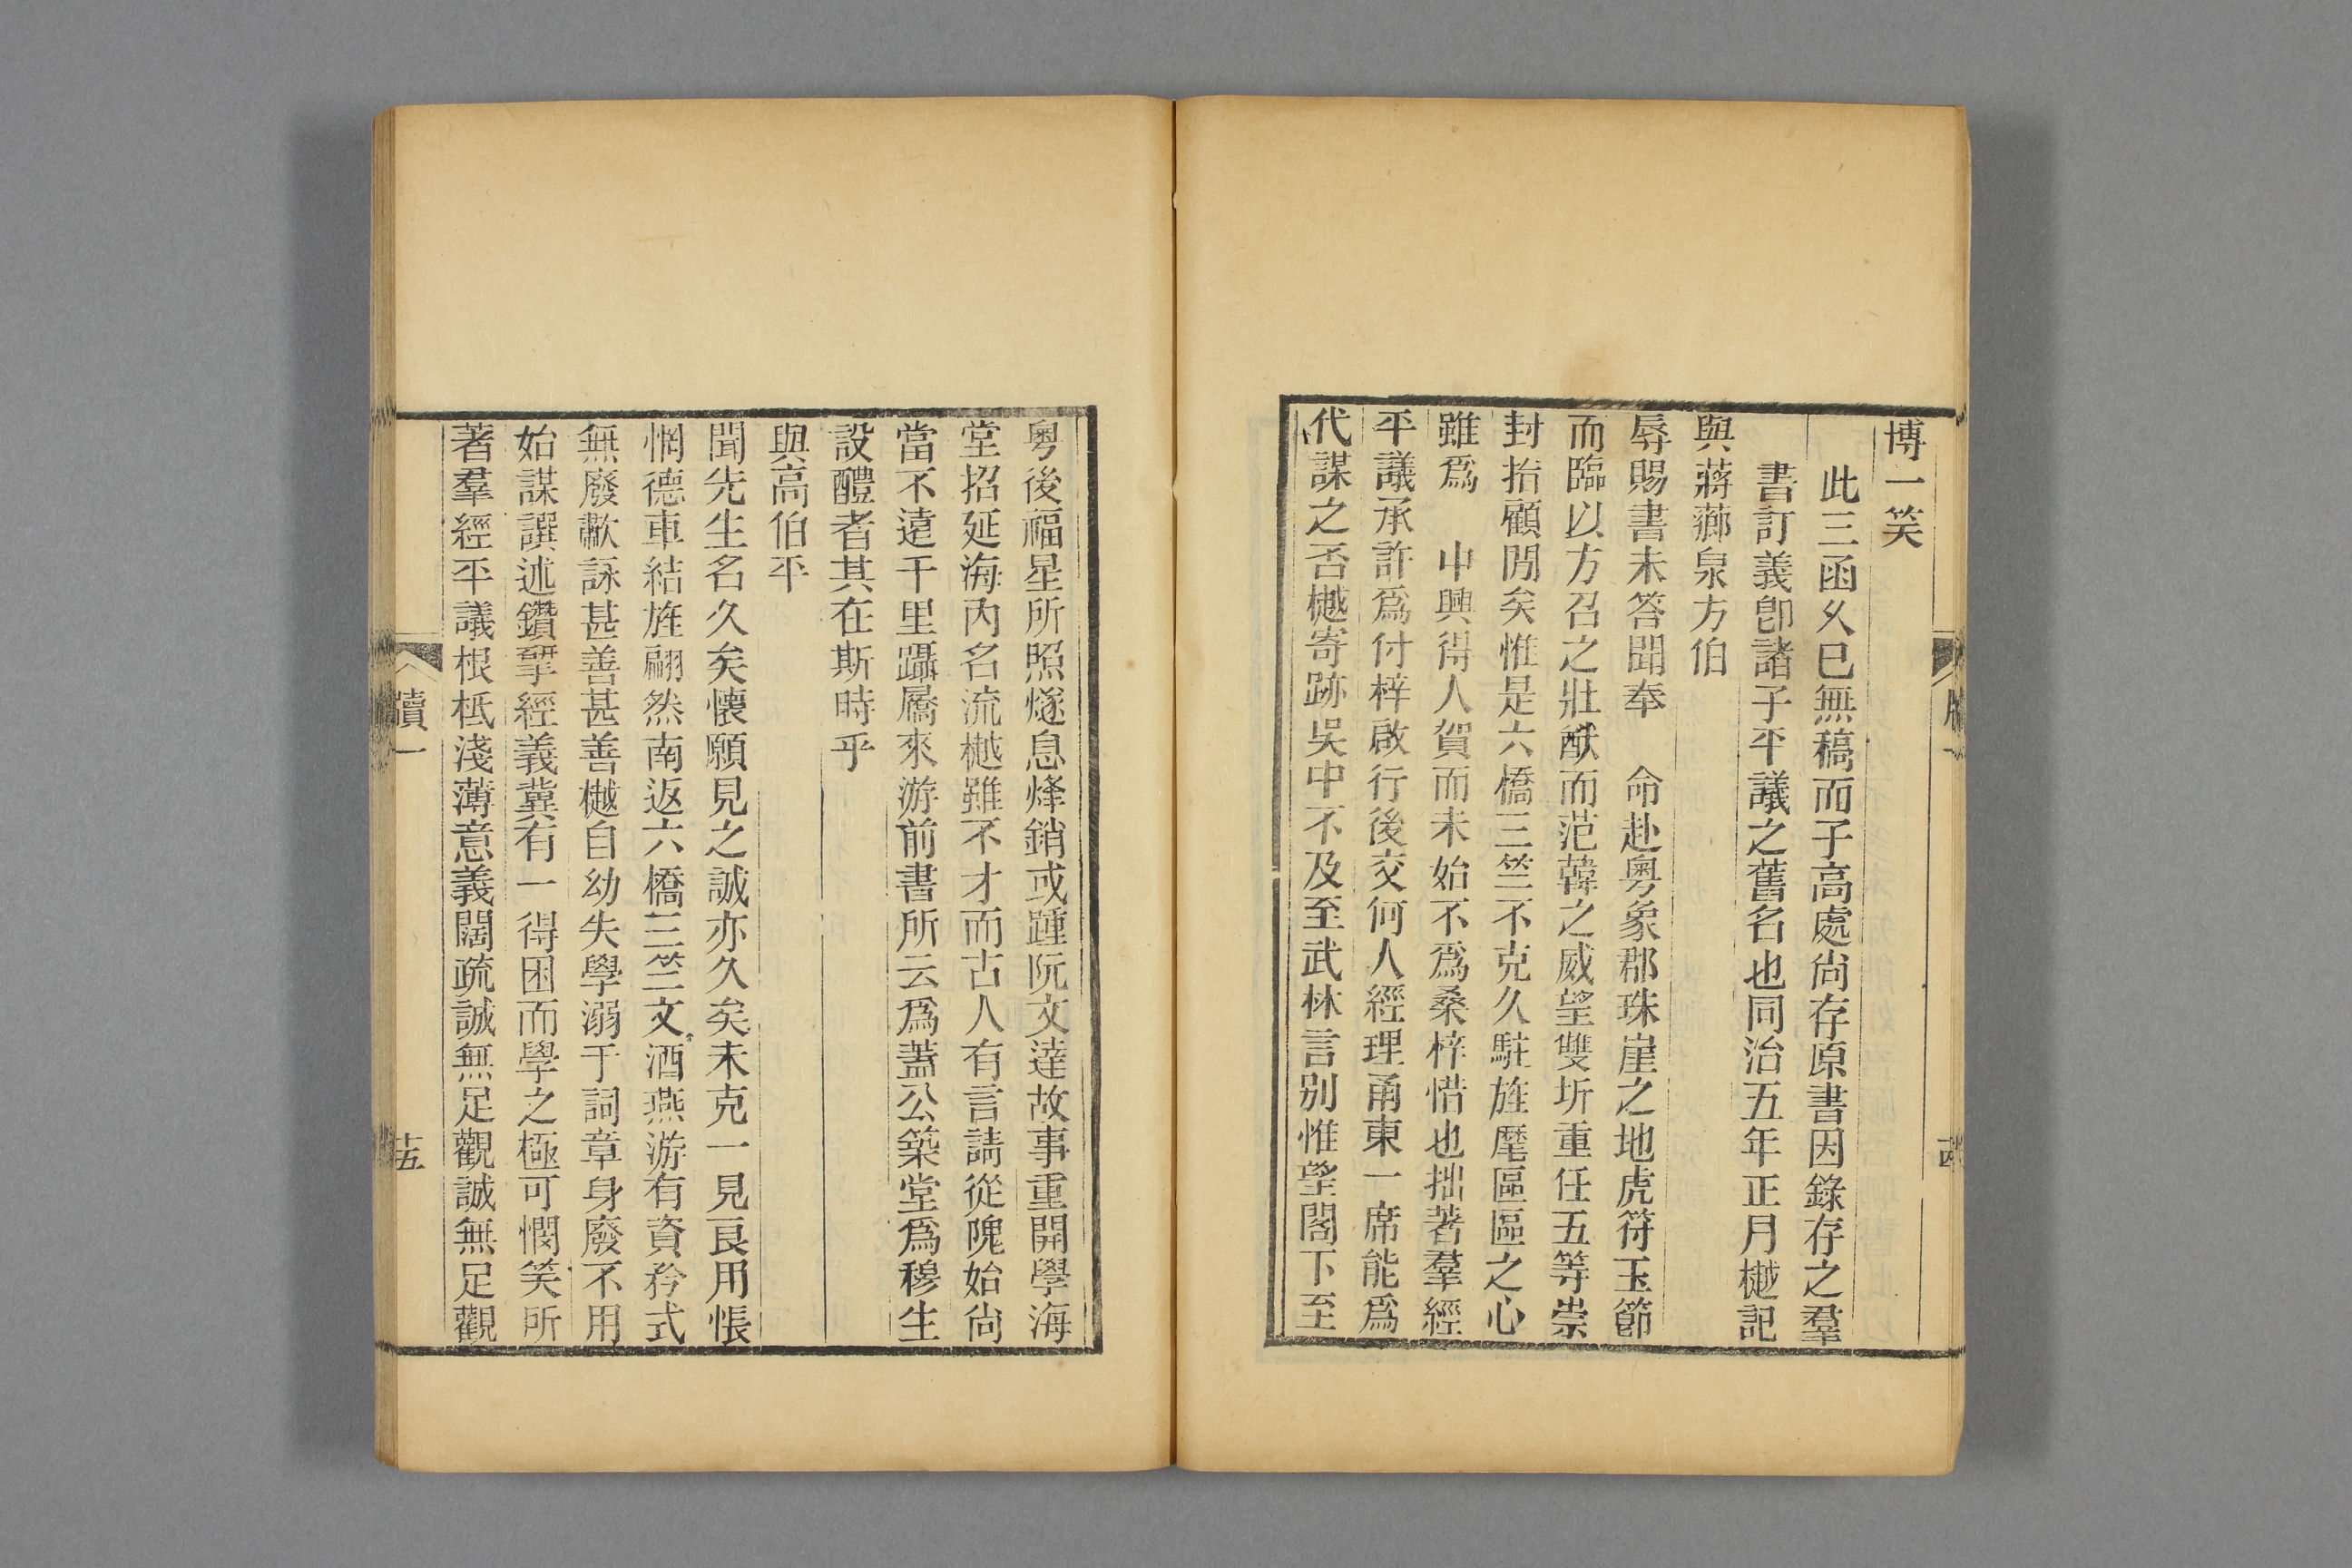 博一笑
此三函久已無稿而子高處尙存原書因錄存之羣
書訂義卽諸子平議之舊名也同治五年正月樾記
與蔣薌泉方伯
辱賜書未答聞奉　命赴粵象郡珠崖之地虎符玉節
而臨以方召之壯猷而范韓之威望雙圻重任五等崇
封抬顧閒矣惟是六橋三竺不克久駐旌麾區區之心
雖爲　中興得人賀而未始不爲桑梓惜也拙著羣經
平議承許爲付梓啟行後交何人經理甬東一席能爲
代謀之否樾寄跡吳中不及至武林言别惟望閣下至
粵後福星所照燧息烽銷或踵阮文達故事重開學海
堂招延海內名流樾雖不才而古人有言請從隗始尙
當不遠千里躡屩來游前書所云爲蓋公築堂爲穆生
設醴者其在斯時乎
與高伯平
聞先生名久矣懷願見之誠亦久矣未克一見良用悵
惘德車結旌翩然南返六橋三竺文酒燕游有資矜式
無廢歗詠甚善甚善樾自幼失學溺于詞章身廢不用
始謀譔述鑽揅經義冀有一得困而學之極可憫笑所
著羣經平議根柢淺薄意義闊疏誠無足觀誠無足觀
牘一
十五